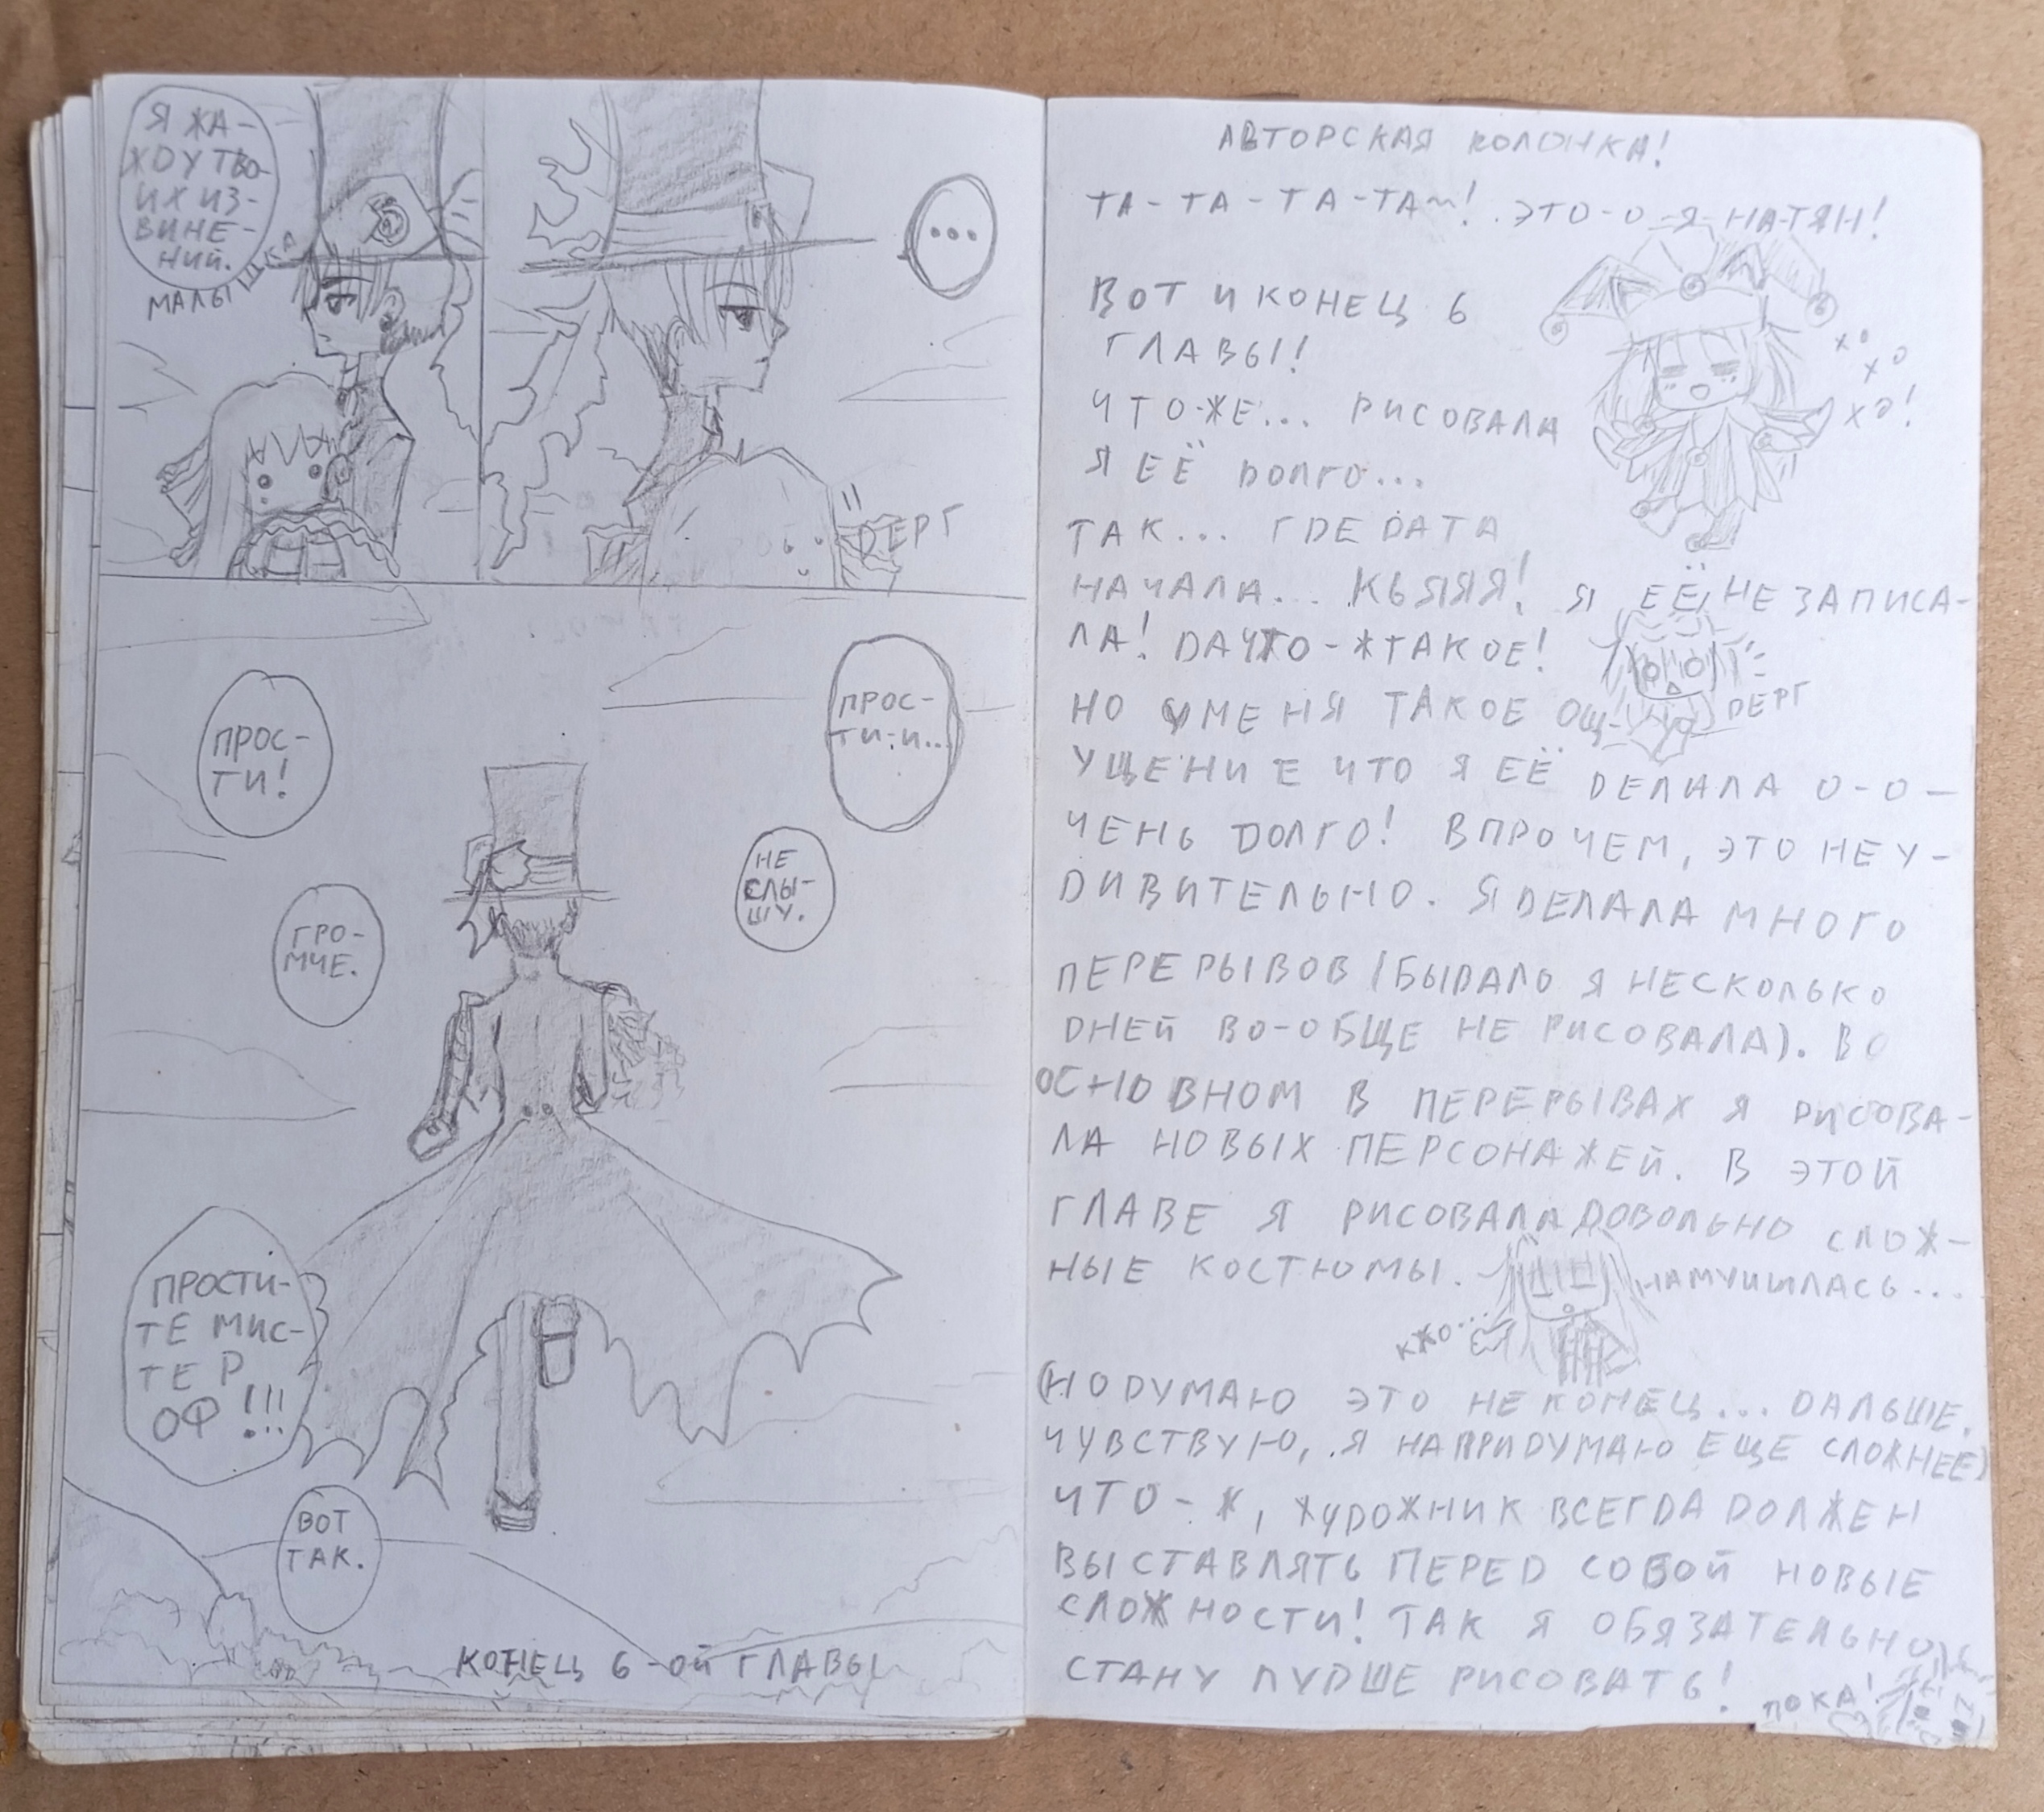 Я ЖА-
ЖДУ ТВО-
ИХ ИЗ-
ВИНЕ-
НИЙ.
МАЛЫШКА
...
ДЕРГ
ПРОС-
ТИ!
ПРОС-
ТИ-И...
НЕ
СЛЫ-
ШУ.
ГРО-
МЧЕ.
ПРОСТИ-
ТЕ МИС-
ТЕР
ОФ!!!
ВОТ
ТАК.
КОНЕЦ 6-ОЙ ГЛАВЫ
АВТОРСКАЯ КОЛОНКА!
ТА-ТА-ТА-ТАМ! ЭТО-О-Я-НА-ТЯН!
ВОТ И КОНЕЦ 6
ГЛАВЫ!
ХО
ХО
ХО!
ЧТО-ЖЕ... РИСОВАЛА
Я ЕЁ ДОЛГО...
ТАК... ГДЕ ДАТА
НАЧАЛА... КЬЯЯЯ! Я ЕЁ НЕ ЗАПИСА-
ЛА! ДА ЧТО-Ж ТАКОЕ!
ДЕРГ
НО У МЕНЯ ТАКОЕ ОЩ-
УЩЕНИЕ ЧТО Я ЕЁ ДЕЛАЛА О-О-
ЧЕНЬ ДОЛГО! ВПРОЧЕМ, ЭТО НЕ У-
ДИВИТЕЛЬНО. Я ДЕЛАЛА МНОГО
ПЕРЕРЫВОВ (БЫВАЛО Я НЕСКОЛЬКО
ДНЕЙ ВО-ОБЩЕ НЕ РИСОВАЛА). ВО
ОСНОВНОМ В ПЕРЕРЫВАХ Я РИСОВА-
ЛА НОВЫХ ПЕРСОНАЖЕЙ. В ЭТОЙ
ГЛАВЕ Я РИСОВАЛА ДОВОЛЬНО СЛОЖ-
НЫЕ КОСТЮМЫ. НАМУЧИЛАСЬ...
(НО ДУМАЮ ЭТО НЕ КОНЕЦ... ДАЛЬШЕ,
ЧУВСТВУЮ, Я НАПРИДУМАЮ ЕЩЕ СЛОЖНЕЕ)
ЧТО-Ж, ХУДОЖНИК ВСЕГДА ДОЛЖЕН
ВЫСТАВЛЯТЬ ПЕРЕД СОБОЙ НОВЫЕ
СЛОЖНОСТИ! ТАК Я ОБЯЗАТЕЛЬНО
СТАНУ ЛУДШЕ РИСОВАТЬ!
ПОКА!